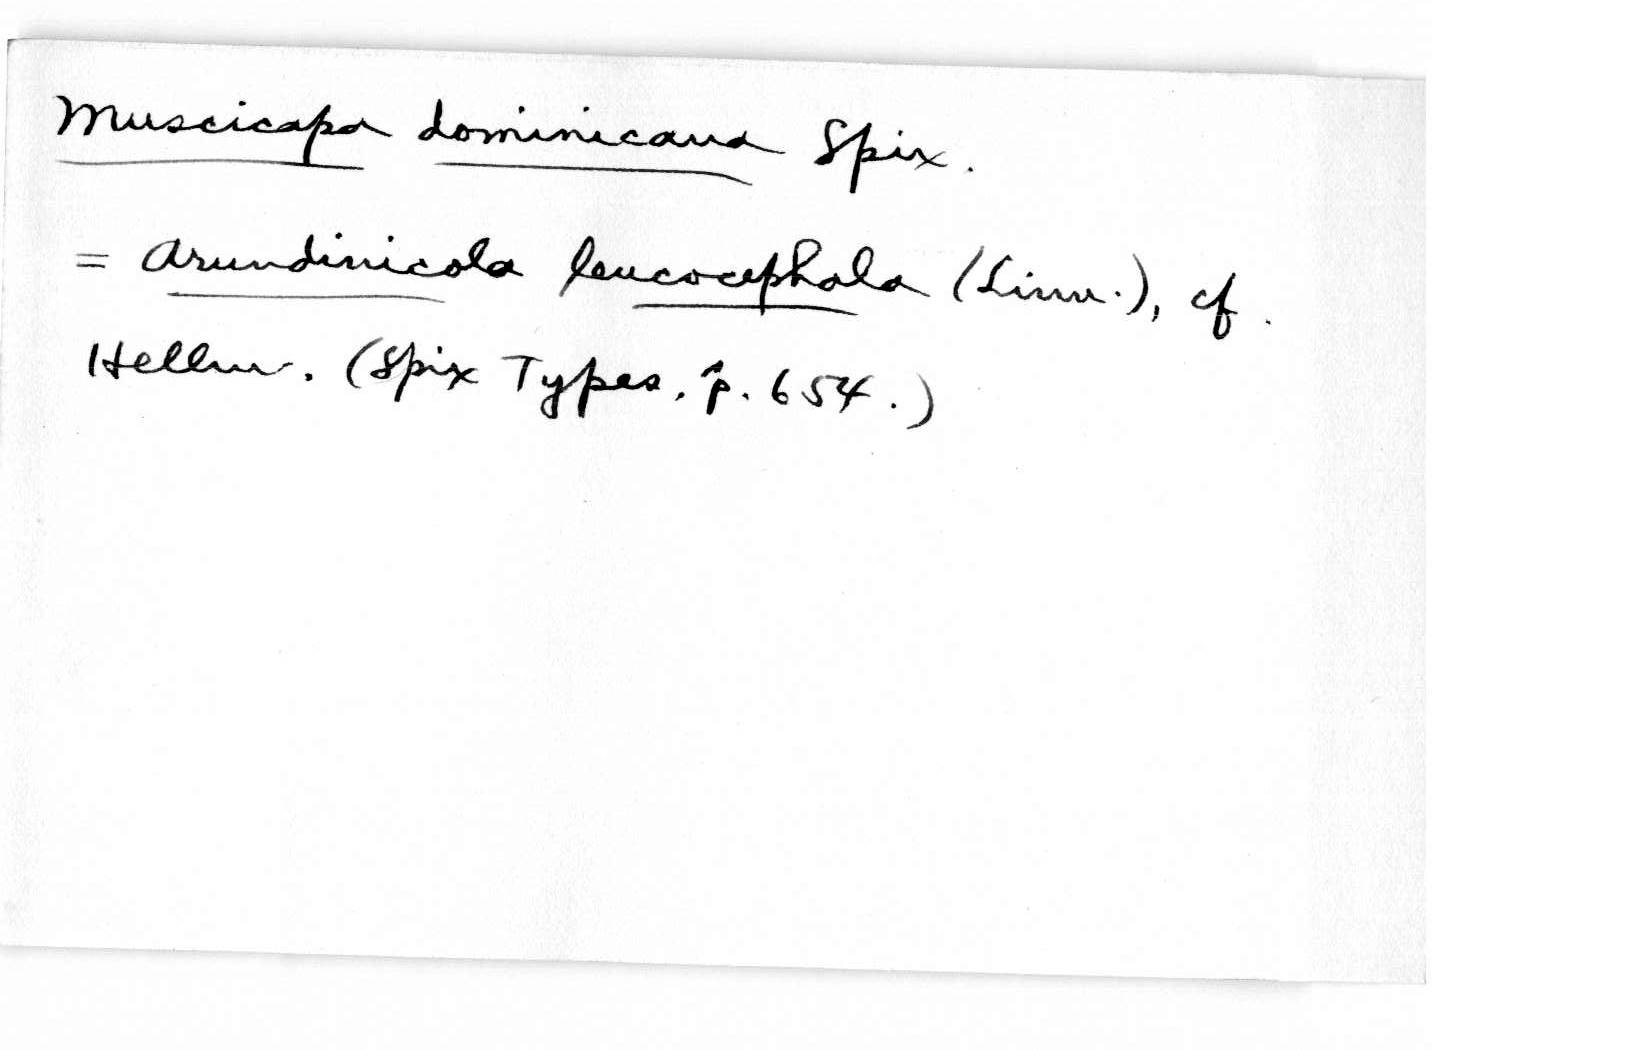 Muscicapa dominicana Spix.
= Arundinicola leucocephala (Linn.), cf.
Hellm. (Spix Types, p. 654.)